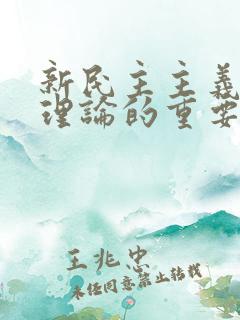 新民主主義
理論的重要
王兆忠
未经同意禁止转载